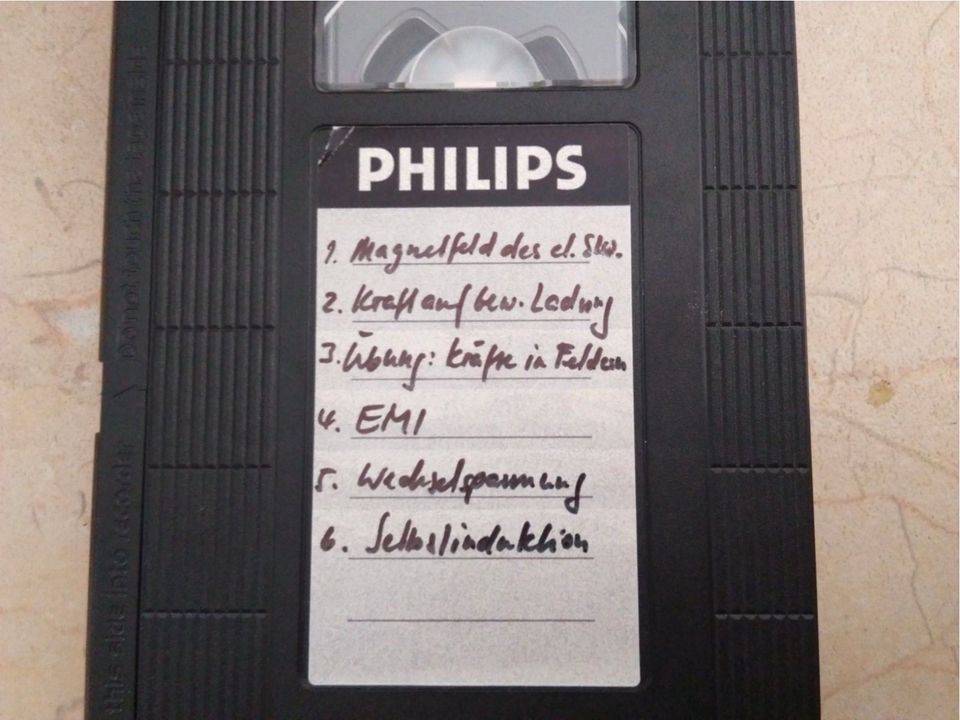 PHILIPS
1. Magnetfeld des el. Str.
2. Kraft auf bew. Ladung
3. Übung: Kräfte in Feldern
4. EMI
5. Wechselspannung
6. Selbstinduktion
Do not touch the tape inside
this side into recorder